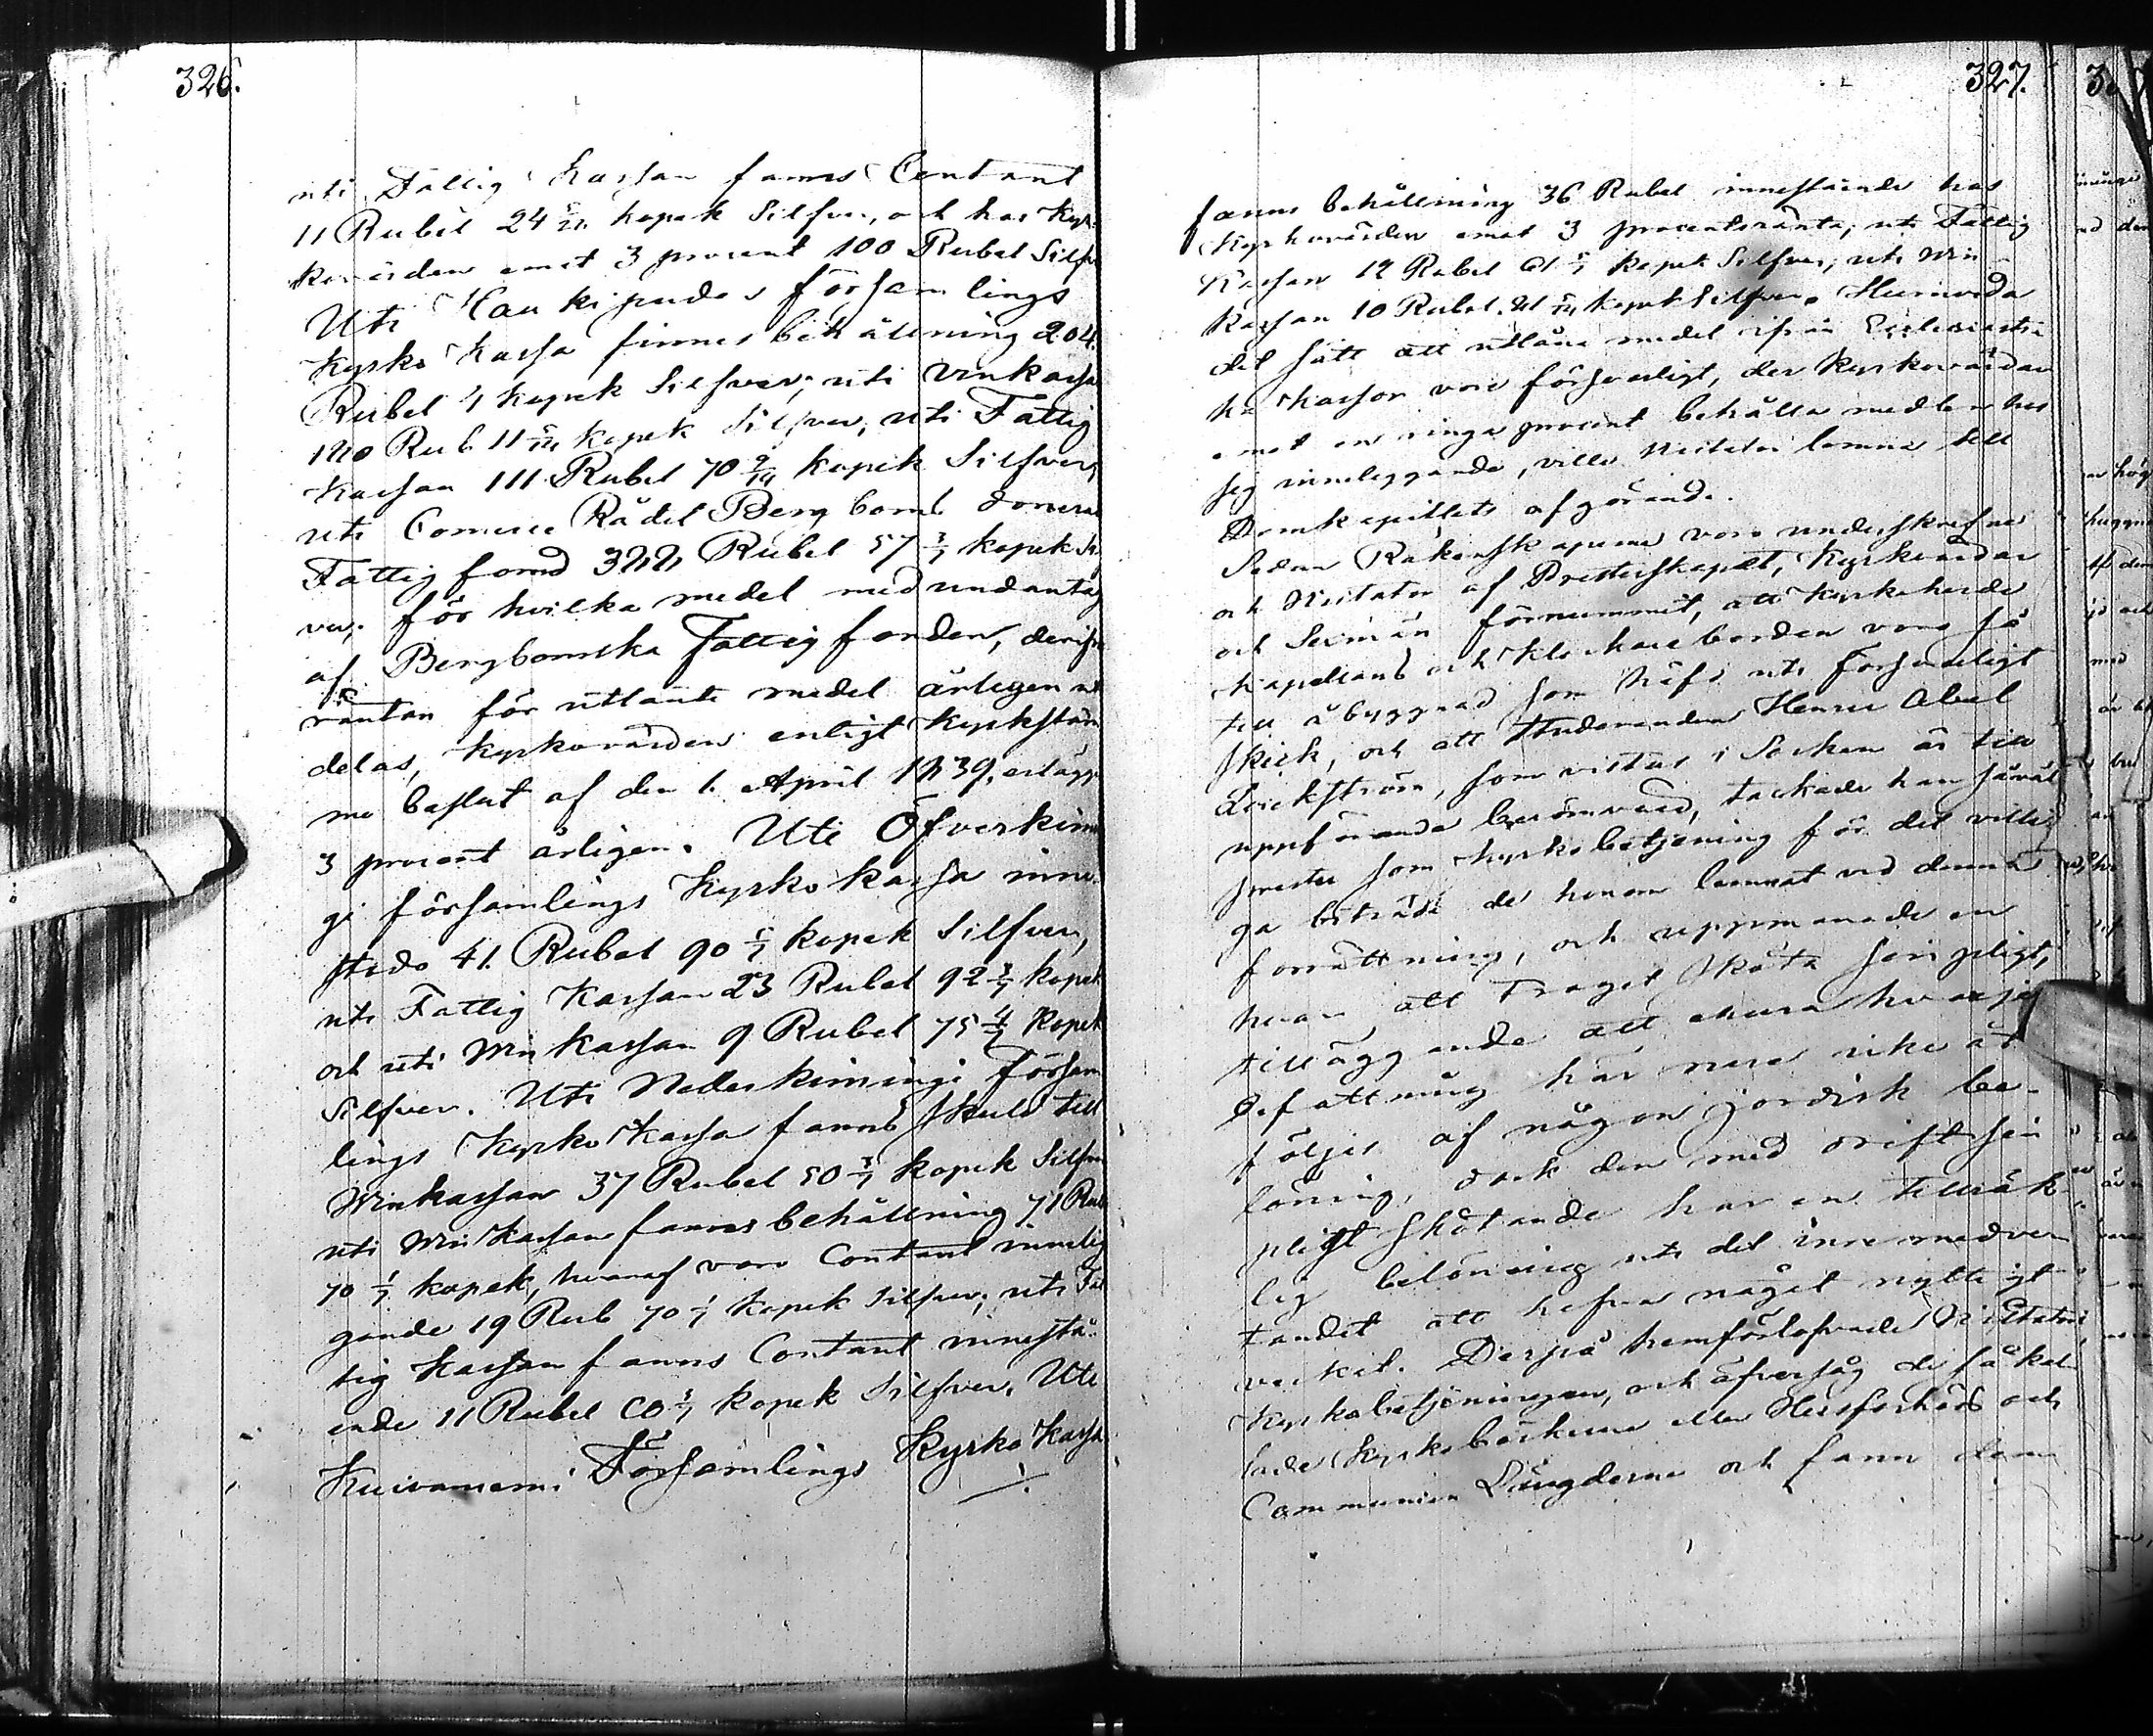 326.
uti Fattig Kassan fanns Contant
11 Rubel 24 kopek Silfver, och hos Kyr-
kovärden emot 3 procent 100 Rubel Silfv
Uti Haukipudas församlings
Kyrko Kassa finnes behållning 204.
Rubel 4 kopek Silfver, uti Vinkassa
120 Rub. 11 kopek Silfver, uti Fattig
Kassan 111 Rubel 70 kopek Silfver,
uti Comerce Rådet Bergboms donerad
Fattig fond 322 Rubel 57 3/7 kopek Si
ver, för hvilka medel med undantag
af Bergbomska Fattigfonden, derifrå
räntan för utlånte medel årligen ut
delas, Kyrkovärden enligt Kyrkstäm
mo beslut af den 1. April 1839, erlägg
3 procent årligen. Uti Öfverkimin
gi församlings Kyrko kassa inne-
stodo 41. Rubel 90 5/7 kopek Silfver,
uti Fattig Kassan 23 Rubel 92 3/7 kopek
och uti Win kassan 9 Rubel 75 4/7 kopek
Silfver. Uti Nederkimingi Försam
lings Kyrko Kassa fanns skuld till
Winkassan 37 Rubel 50 3/7 kopek Silfver
uti Win Kassan fanns behållning 71 Rub
70 1/7 kopek, hvaraf voro Contant innelig
gande 19 Rub 70 1/7 kopek Silfver, uti Fat
tig Kassan fanns Contant innestå-
ende 11 Rubel 60 3/7 kopek Silfver. Uti
Kuivaniemi Församlings Kyrko Kassa
327.
fanns behållning 36 Rubel innestående hos
Kyrkovärden emot 3 procentsränta, uti Fattig
Kassan 12 Rubel 61 5/7 kopek Silfver, uti Win-
Kassan 10 Rubel. 21 kopek Silfver. Huruvida
det sätt att utlåna medel ifrån Ecclesiasti-
ka Kassor vore försvarligt, der Kyrkovärdar
emot en ringa procent behålla medlen hos
sig inneliggande, ville Visitator lemna till
Domkapitlets afgörande.
Sedan Räkenskaperne voro underskrefne
och Visitator af Presterskapet, Kyrkvärdar
och Sexmän förnummit, att Kyrkoherde
Kapellans och Klockareborden voro så
till åbyggnad som häfd uti försvarligt
skick, och att Studeranden Henric Abel
Frickström, som vistas i Socken är till
uppförande berömvärd, tackade han såväl
prester som kyrkobetjening för det villi-
ga biträde de honom lemnat vid denna
förrättning, och uppmanade en
hvar att troget sköta sin pligt,
tilläggande att ehuru hvarje
befattning här nere icke åt-
följes af någon jordisk be-
löning, dock den med drift sin
pligt skötande har en tillräk-
lig belöning uti det inre medve-
tandet att hafva något nyttigt
verkat. Derpå hemförlofvade Visitator
Kyrkobetjeningen, och öfversåg de så kal-
lade Kyrkoböckerne eller Husförhörs och
Communion Längderne och fann dem